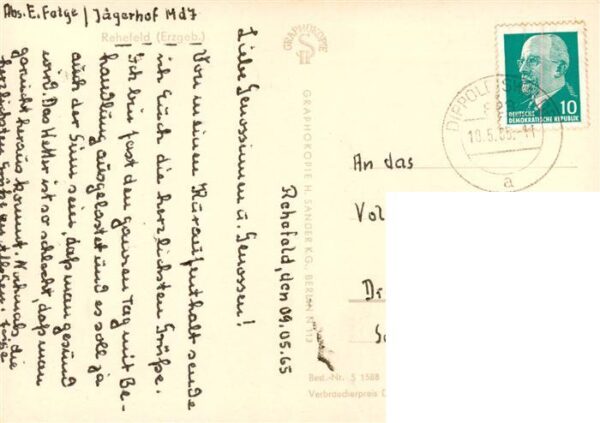 Abs. E. Folge / Jägerhof MdJ
Rehefeld (Erzgeb.)
Rehefeld, den 09.05.65
Liebe Genossinnen u. Genossen!
Von meinem Kuraufenthalt sende
ich Euch die herzlichsten Grüße.
Ich bin fast den ganzen Tag mit Be-
handlung ausgelastet und es soll ja
auch der Sinn sein, daß man gesund
wird. Das Wetter ist so schlecht, daß man
garnicht heraus kommt. Nochmals die
herzlichsten Grüße an
GRAPHOKOPIE
GRAPHOKOPIE H. SANDER KG., BERLIN N 113
Best.-Nr. S 1588
Verbraucherpreis
DEUTSCHE
DEMOKRATISCHE REPUBLIK
10
a
An das